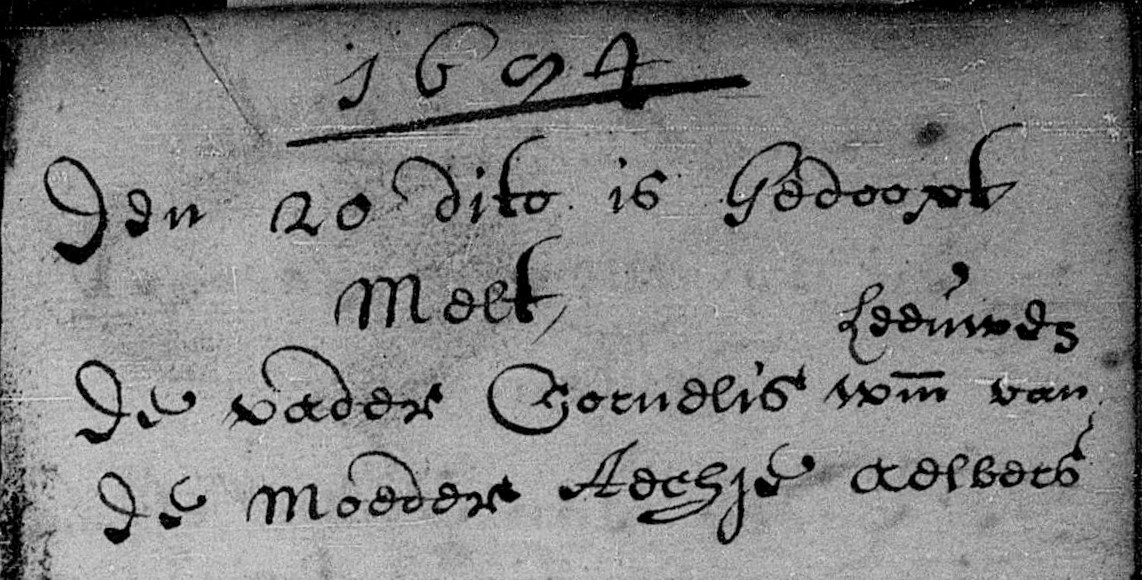 1694
Den 20 dito is Gedoopt
Melt
Leeuwen
De vader Cornelis wm̅ van
De Moeder Aechje aelbers